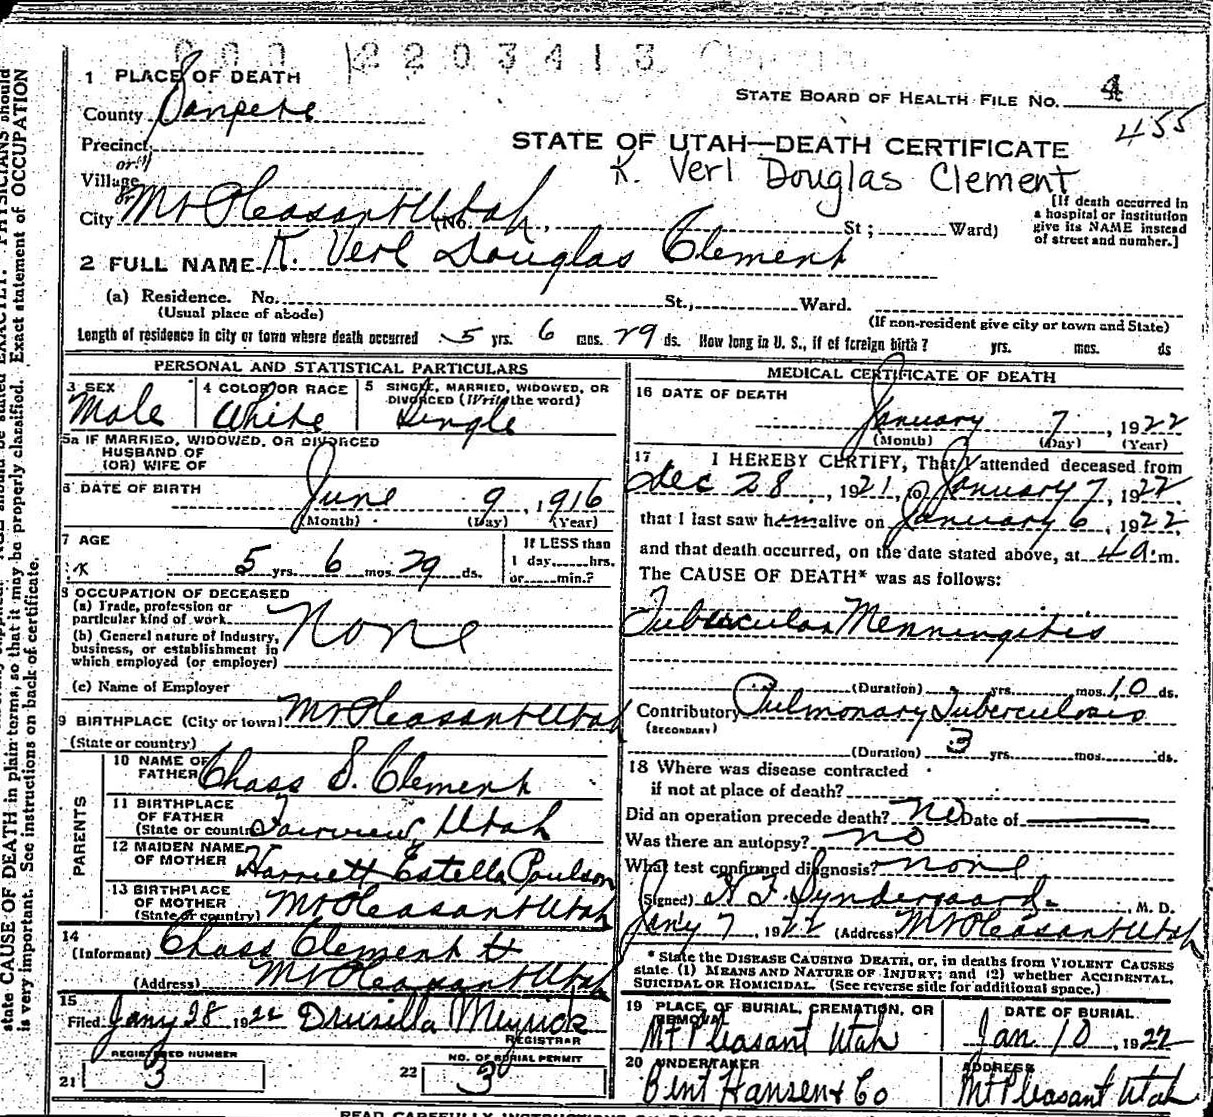 200 2203413
1 PLACE OF DEATH
STATE BOARD OF HEALTH FILE NO. 4
455
County Sanpete
Precinct
STATE OF UTAH—DEATH CERTIFICATE
or
K. Verl Douglas Clement
Village
or
City Mt Pleasant Utah (No. St; Ward)
[If death occurred in
a hospital or institution
give its NAME instead
of street and number.]
2 FULL NAME K. Verl Douglas Clement
(a) Residence. No. St., Ward.
(Usual place of abode)
(If non-resident give city or town and State)
Length of residence in city or town where death occurred 5 yrs. 6 mos. 29 ds. How long in U. S., if of foreign birth? yrs. mos. ds
PERSONAL AND STATISTICAL PARTICULARS
3 SEX Male
4 COLOR OR RACE White
5 SINGLE, MARRIED, WIDOWED, OR
DIVORCED (Write the word)
Single
5a IF MARRIED, WIDOWED, OR DIVORCED
HUSBAND OF
(OR) WIFE OF
6 DATE OF BIRTH June 9, 1916
(Month) (Day) (Year)
7 AGE
5 yrs. 6 mos. 29 ds.
If LESS than
1 day, hrs.
or min.?
8 OCCUPATION OF DECEASED
(a) Trade, profession or
particular kind of work None
(b) General nature of industry,
business, or establishment in
which employed (or employer)
(c) Name of Employer
9 BIRTHPLACE (City or town) Mt Pleasant Utah
(State or country)
PARENTS
10 NAME OF
FATHER Chass S. Clement
11 BIRTHPLACE
OF FATHER
(State or country) Fairview, Utah
12 MAIDEN NAME
OF MOTHER Harriett Estella Poulson
13 BIRTHPLACE
OF MOTHER
(State or country) Mt Pleasant Utah
14
(Informant) Chass Clement
(Address) Mt Pleasant Utah
15
Filed Jany 28 1922 Drusilla Meyrick
REGISTRAR
REGISTERED NUMBER
21 3
NO. OF BURIAL PERMIT
22 3
MEDICAL CERTIFICATE OF DEATH
16 DATE OF DEATH
January 7, 1922
(Month) (Day) (Year)
17 I HEREBY CERTIFY, That I attended deceased from
Dec 28, 1921, to January 7, 1922
that I last saw him alive on January 6, 1922
and that death occurred, on the date stated above, at 4 a. m.
The CAUSE OF DEATH* was as follows:
Tubercular Menningitis
(Duration) yrs. mos. 10 ds.
Contributory Pulmonary Tuberculosis
(SECONDARY)
(Duration) 3 yrs. mos. ds.
18 Where was disease contracted
if not at place of death?
Did an operation precede death? no Date of
Was there an autopsy? no
What test confirmed diagnosis? none
(Signed) H. F. Syndergaard, M. D.
Jany 7, 1922 (Address) Mt Pleasant Utah
* State the DISEASE CAUSING DEATH, or, in deaths from VIOLENT CAUSES
state (1) MEANS AND NATURE OF INJURY; and (2) whether ACCIDENTAL,
SUICIDAL OR HOMICIDAL. (See reverse side for additional space.)
19 PLACE OF BURIAL, CREMATION, OR
REMOVAL
Mt Pleasant Utah
DATE OF BURIAL
Jan 10, 1922
20 UNDERTAKER
Bent Hansen & Co
ADDRESS
Mt Pleasant Utah
state CAUSE OF DEATH in plain terms, so that it may be properly classified. Exact statement of OCCUPATION
is very important. See instructions on back of certificate.